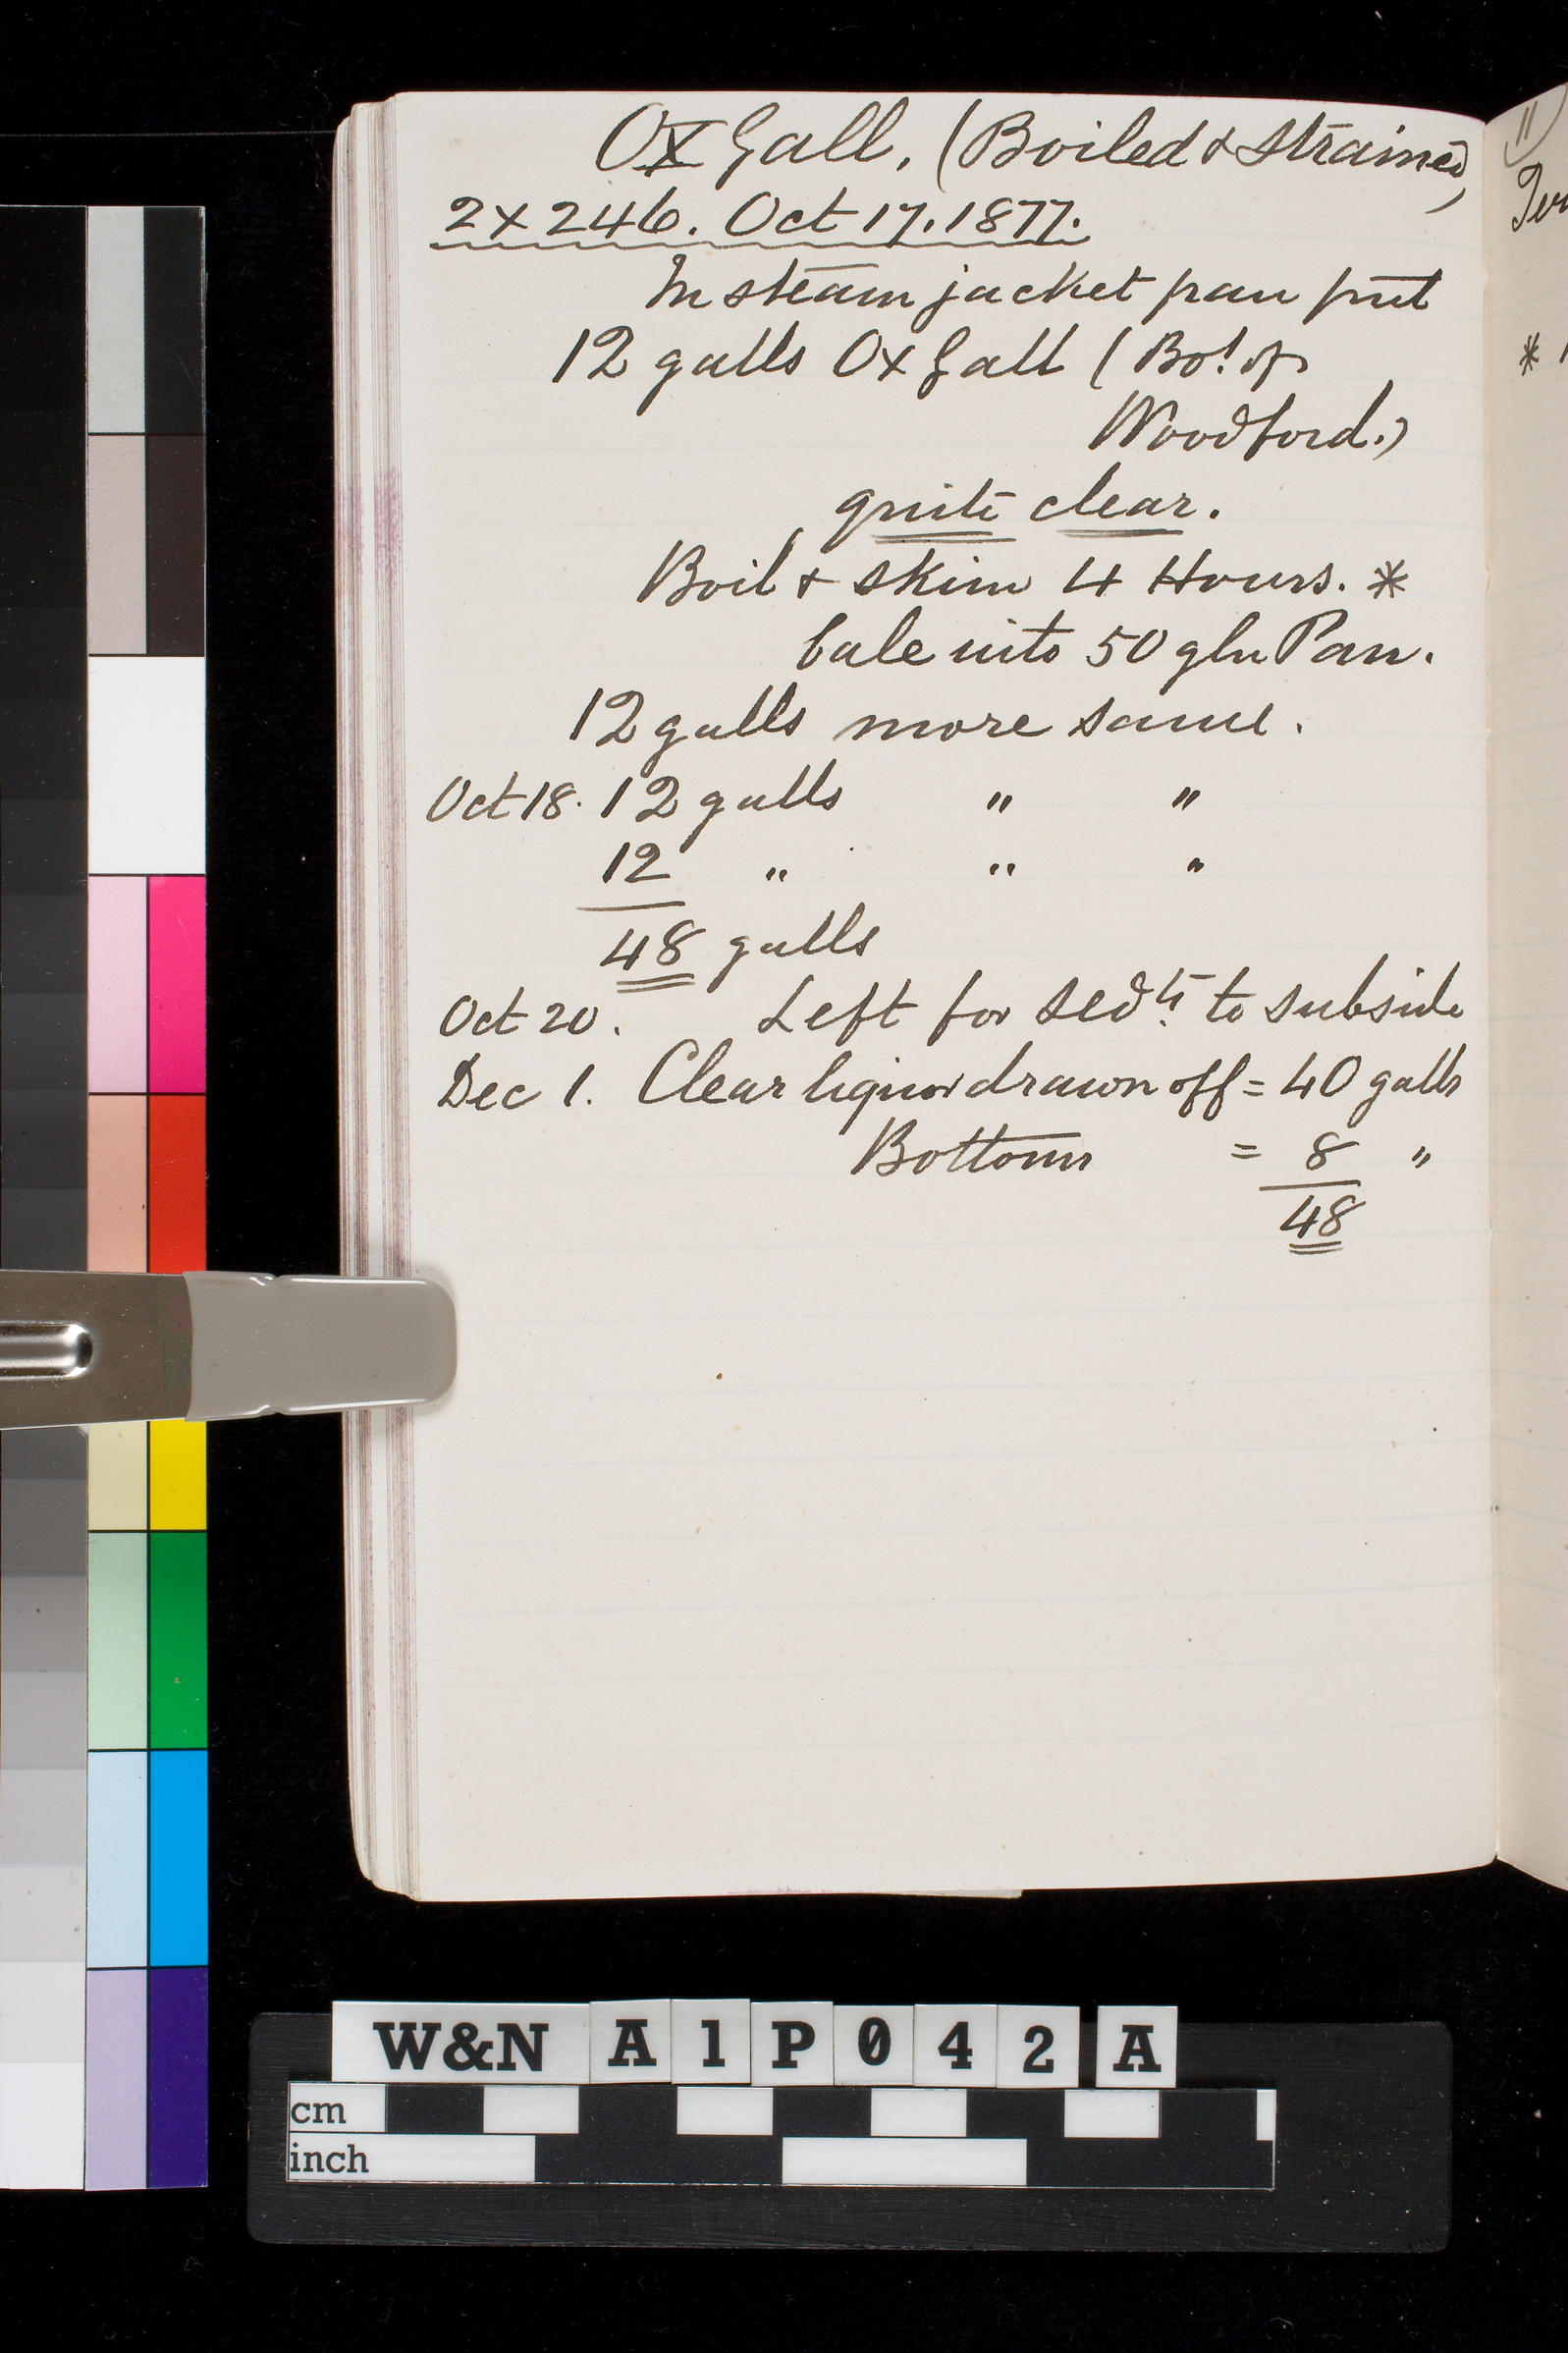 Ox Gall. (Boiled & Strained)
2 x 246. Oct 17. 1877.
In steam jacket pan put
12 galls Ox Gall (Bot. of
Woodford.)
quite clear.
Boil & skim 4 Hours. *
bale into 50 gln Pan.
12 galls more same.
Oct 18. 12 galls " "
12 " " "
48 galls
Oct 20. Left for sedt. to subside
Dec 1. Clear liquor drawn off = 40 galls
Bottoms = 8 "
48
11)
*
W&N A1P042A
cm
inch